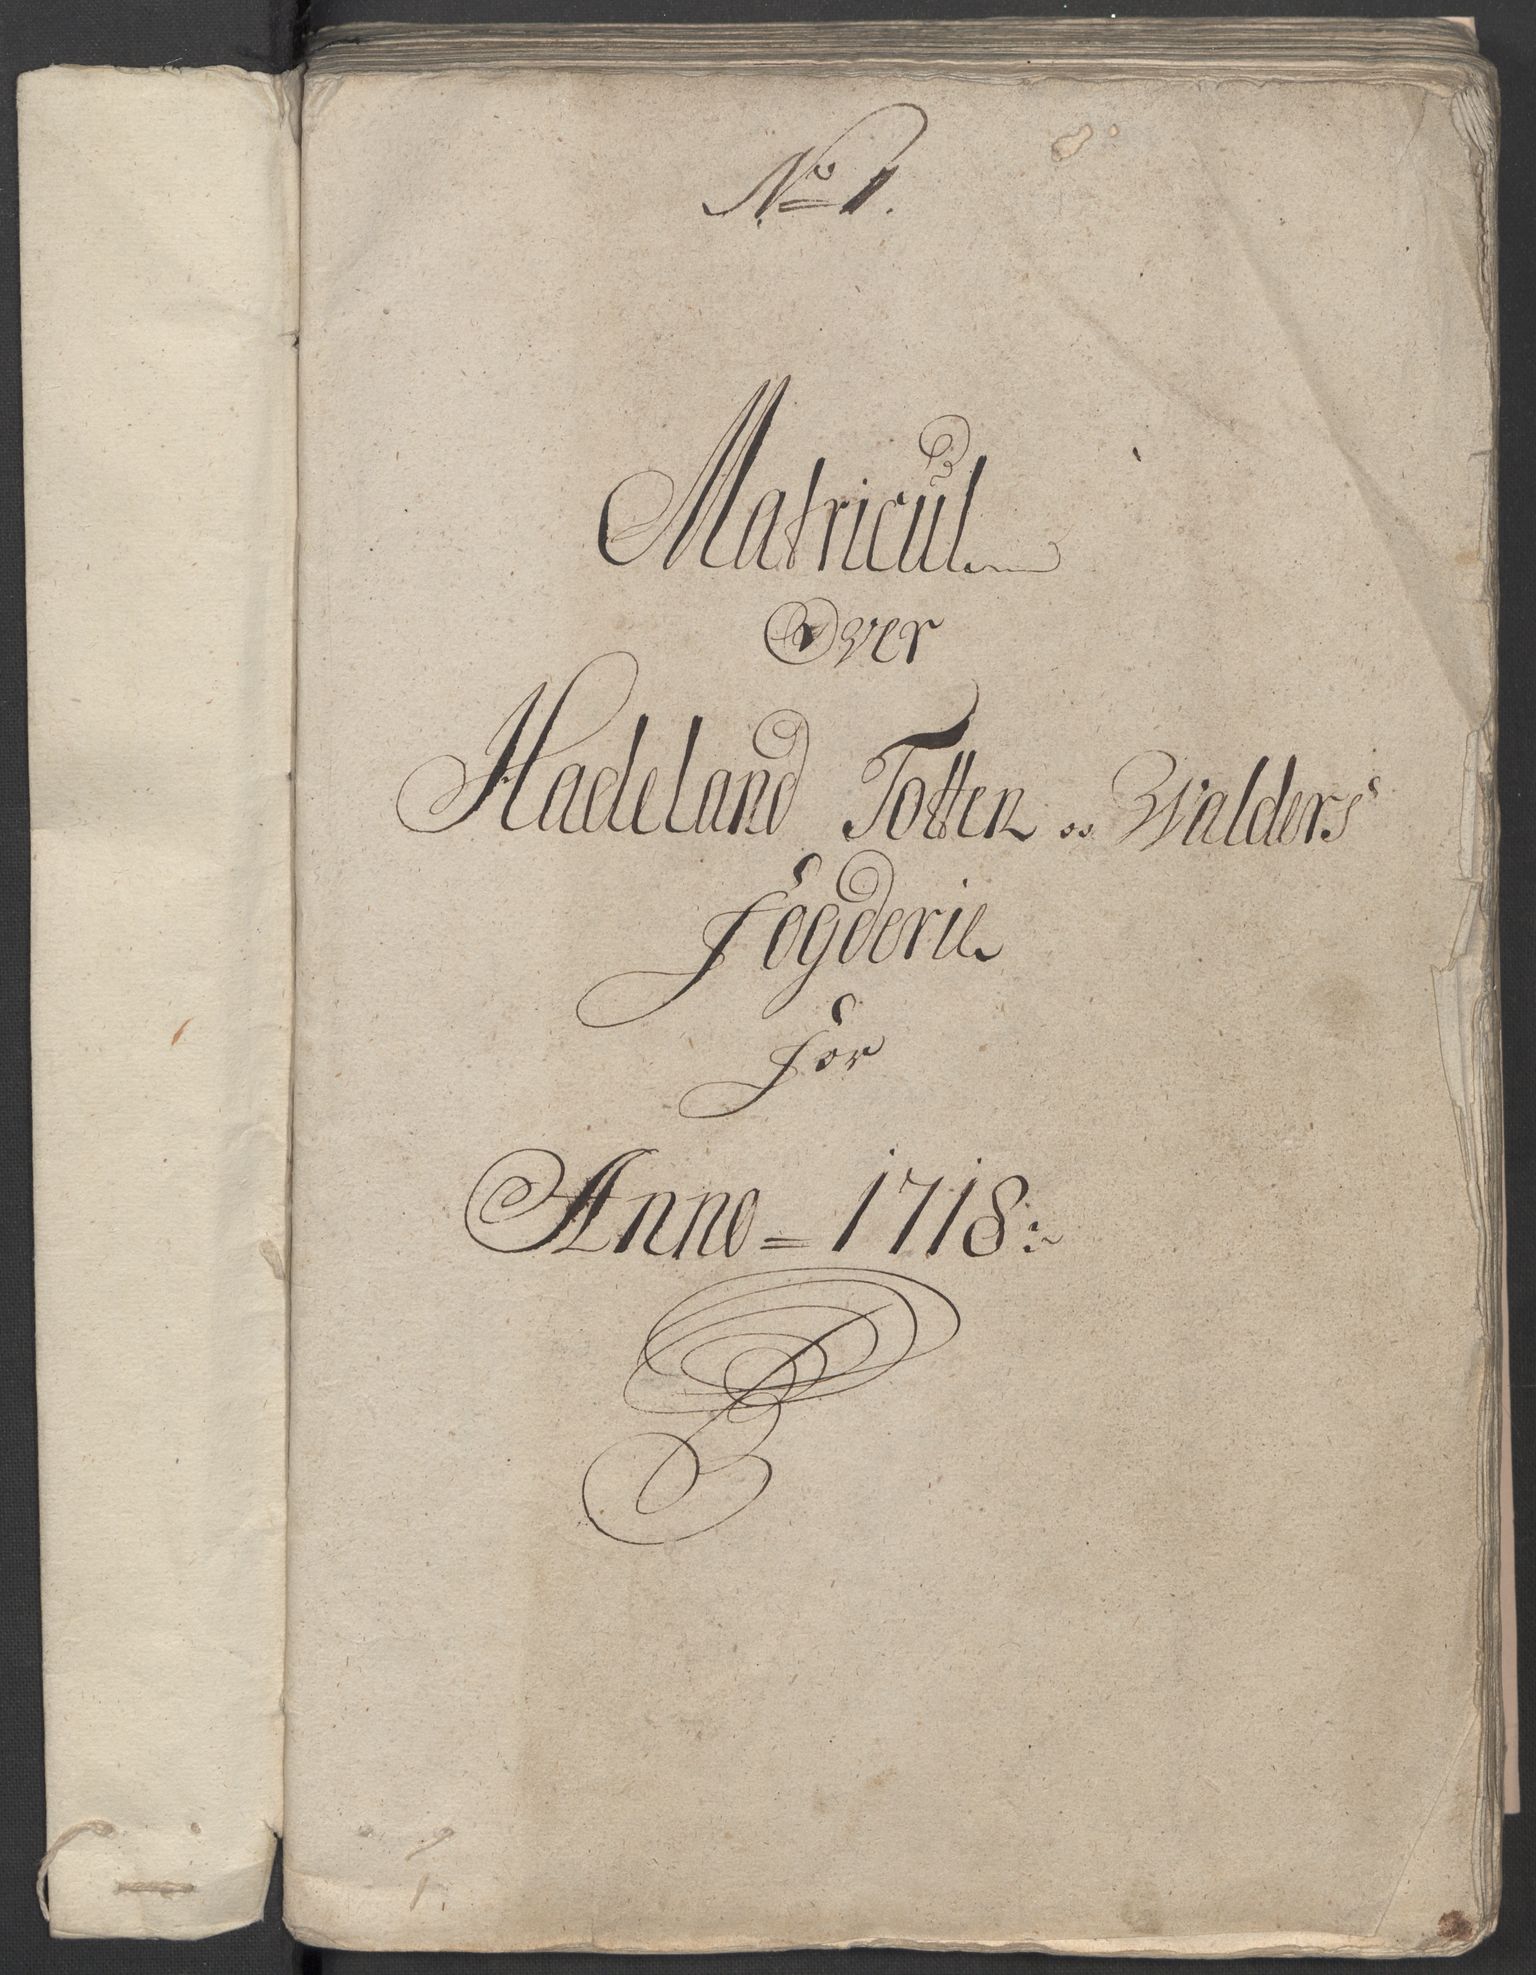 No 1.
Matricul
Over
Hadeland Totten og Walders
Fogderie
for
Anno = 1718: